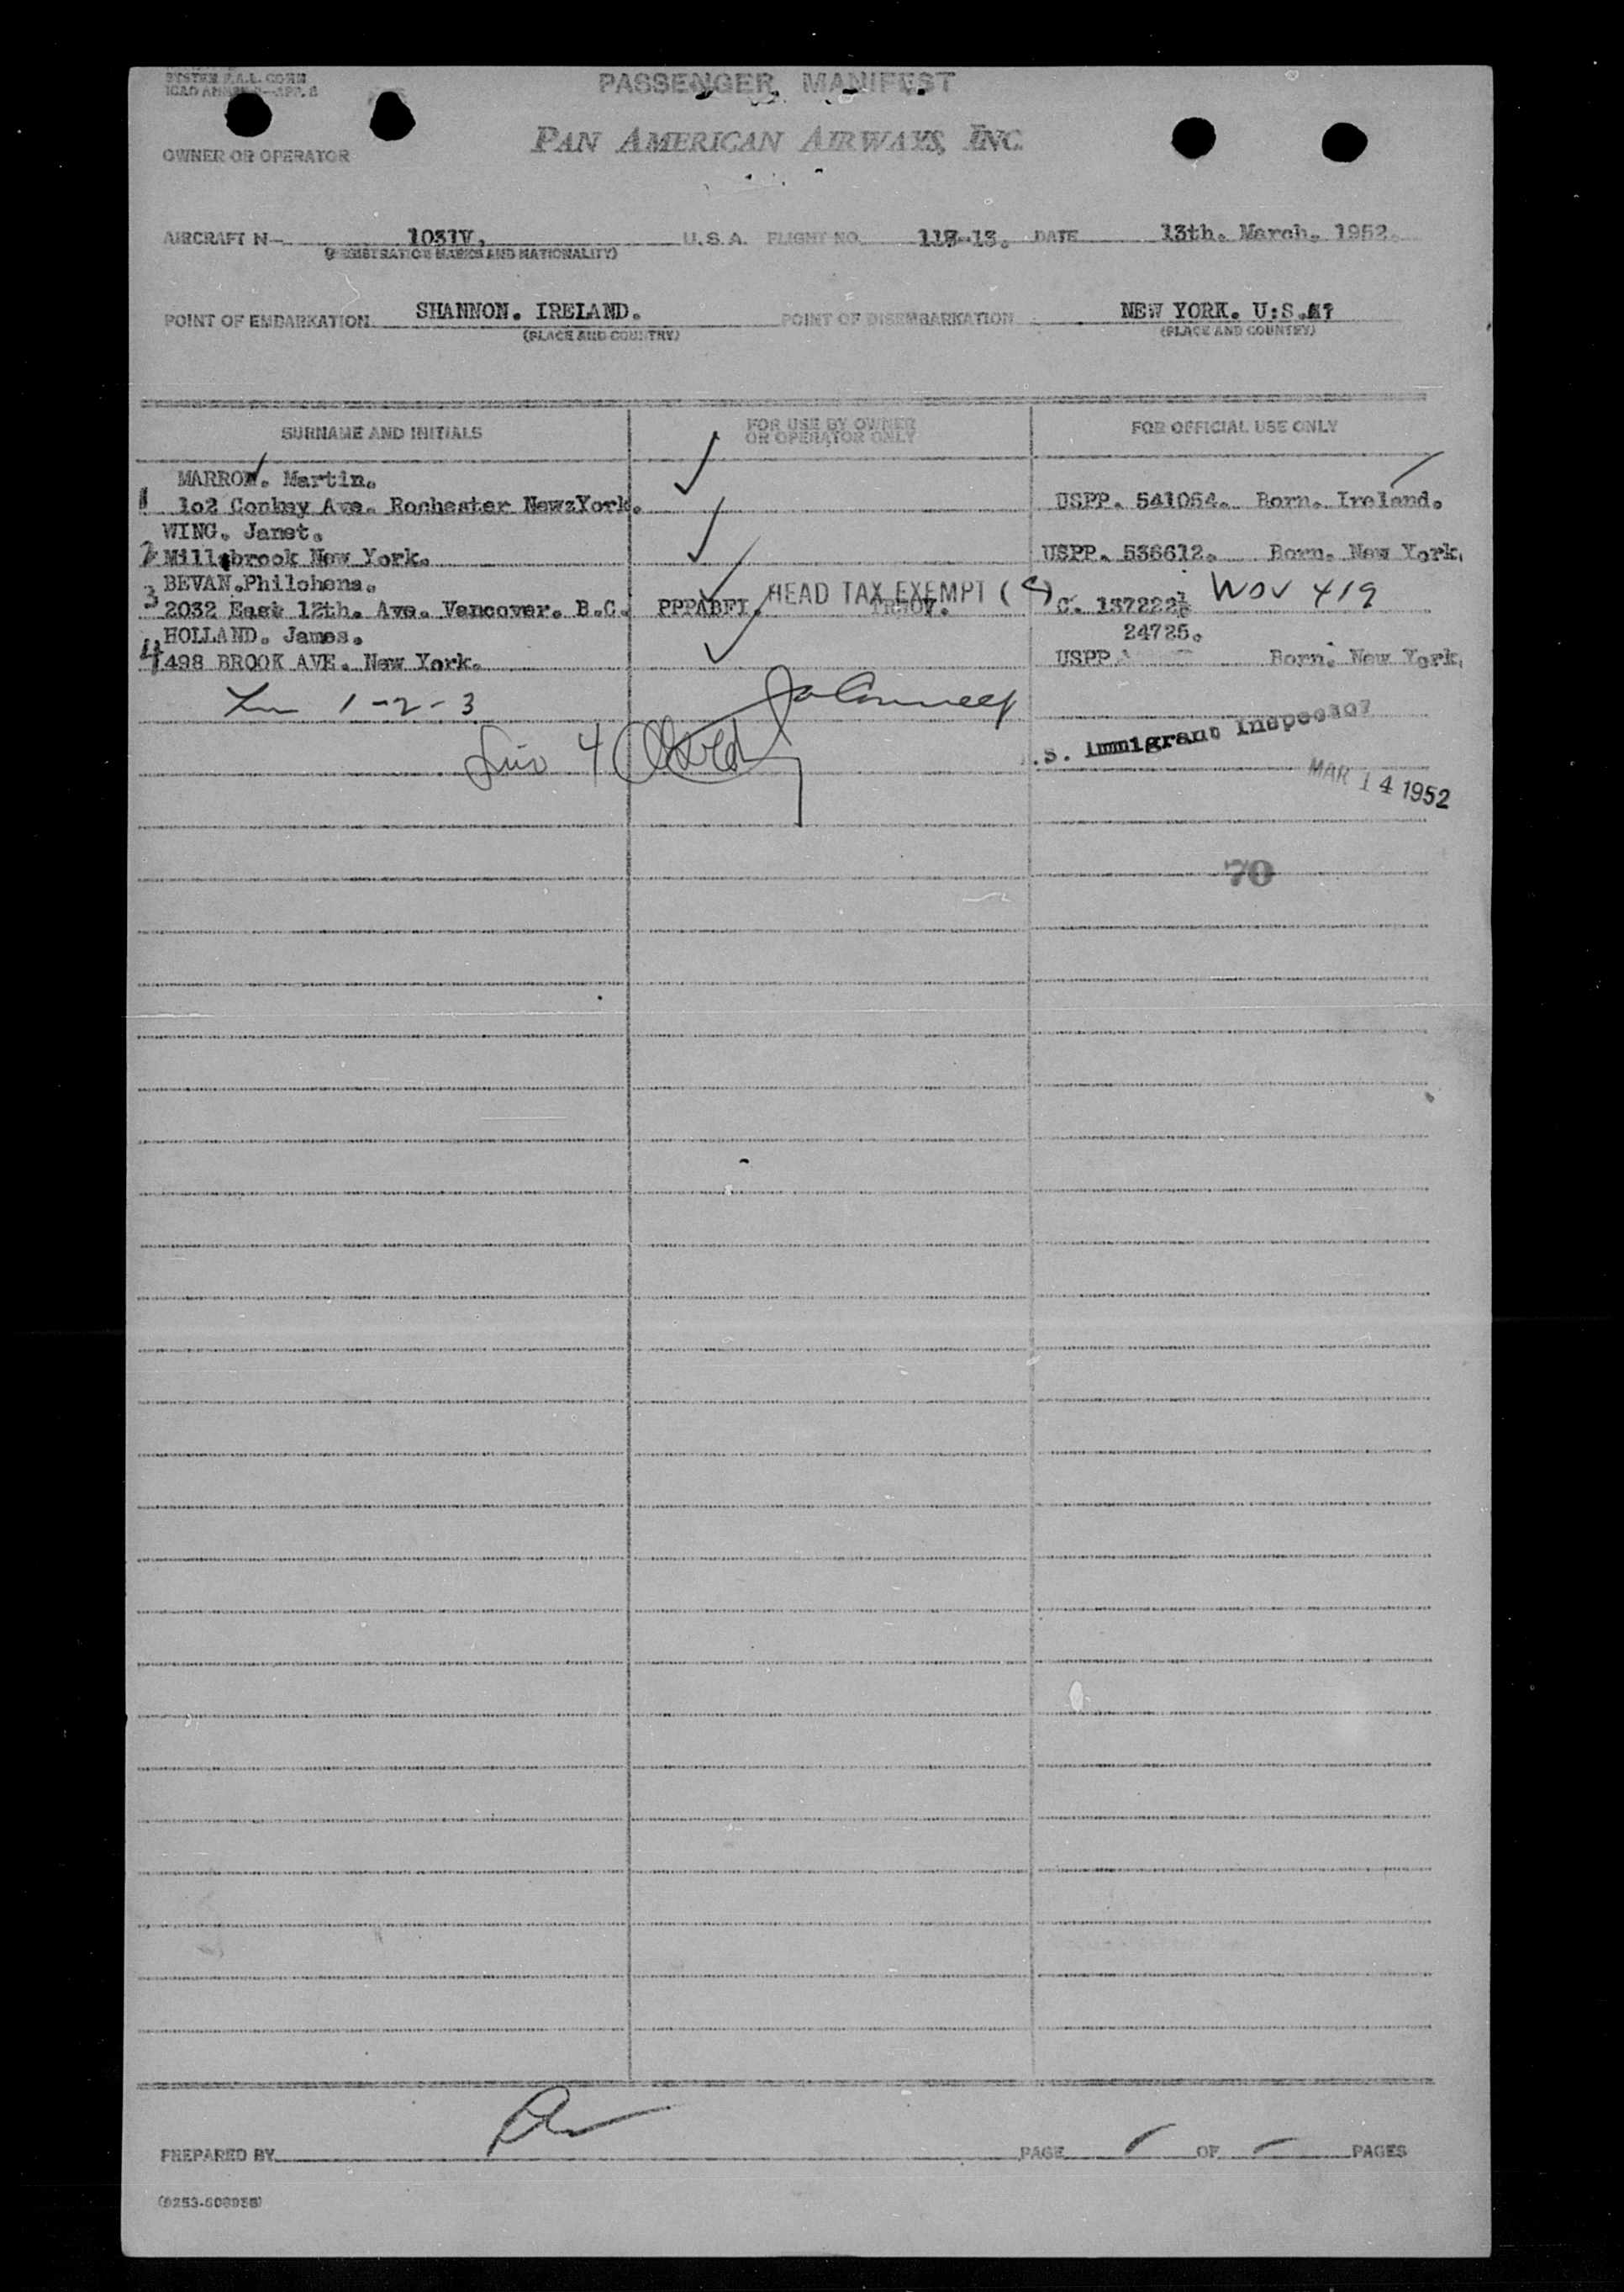 SYSTEM F.A.L. CORM
PASSENGER MANIFEST
PAN AMERICAN AIRWAYS, INC.
OWNER OR OPERATOR
AIRCRAFT N- 1031V, U.S.A. FLIGHT NO. DATE 13th. March. 1952.
(REGISTRATION MARKS AND NATIONALITY)
POINT OF EMBARKATION SHANNON. IRELAND. POINT OF DISEMBARKATION NEW YORK. U:S.A?
(PLACE AND COUNTRY) (PLACE AND COUNTRY)
SURNAME AND INITIALS FOR USE BY OWNER OR OPERATOR ONLY FOR OFFICIAL USE ONLY
MARROW. Martin.
1 1o2 Conkey Ave. Rochester NewzYork. USPP. 541054. Born. Ireland.
WING. Janet.
2 Millsbrook New York. USPP. 536612. Born. New York.
BEVAN.Philohena.
3 2032 East 12th. Ave. Vancover. B.C. HEAD TAX EXEMPT C. WOV 419
HOLLAND. James. 24725.
4 498 BROOK AVE. New York. USPP Born. New York.
1-2-3
4
.S. Immigrant Inspector
MAR 14 1952
70
PREPARED BY PAGE OF PAGES